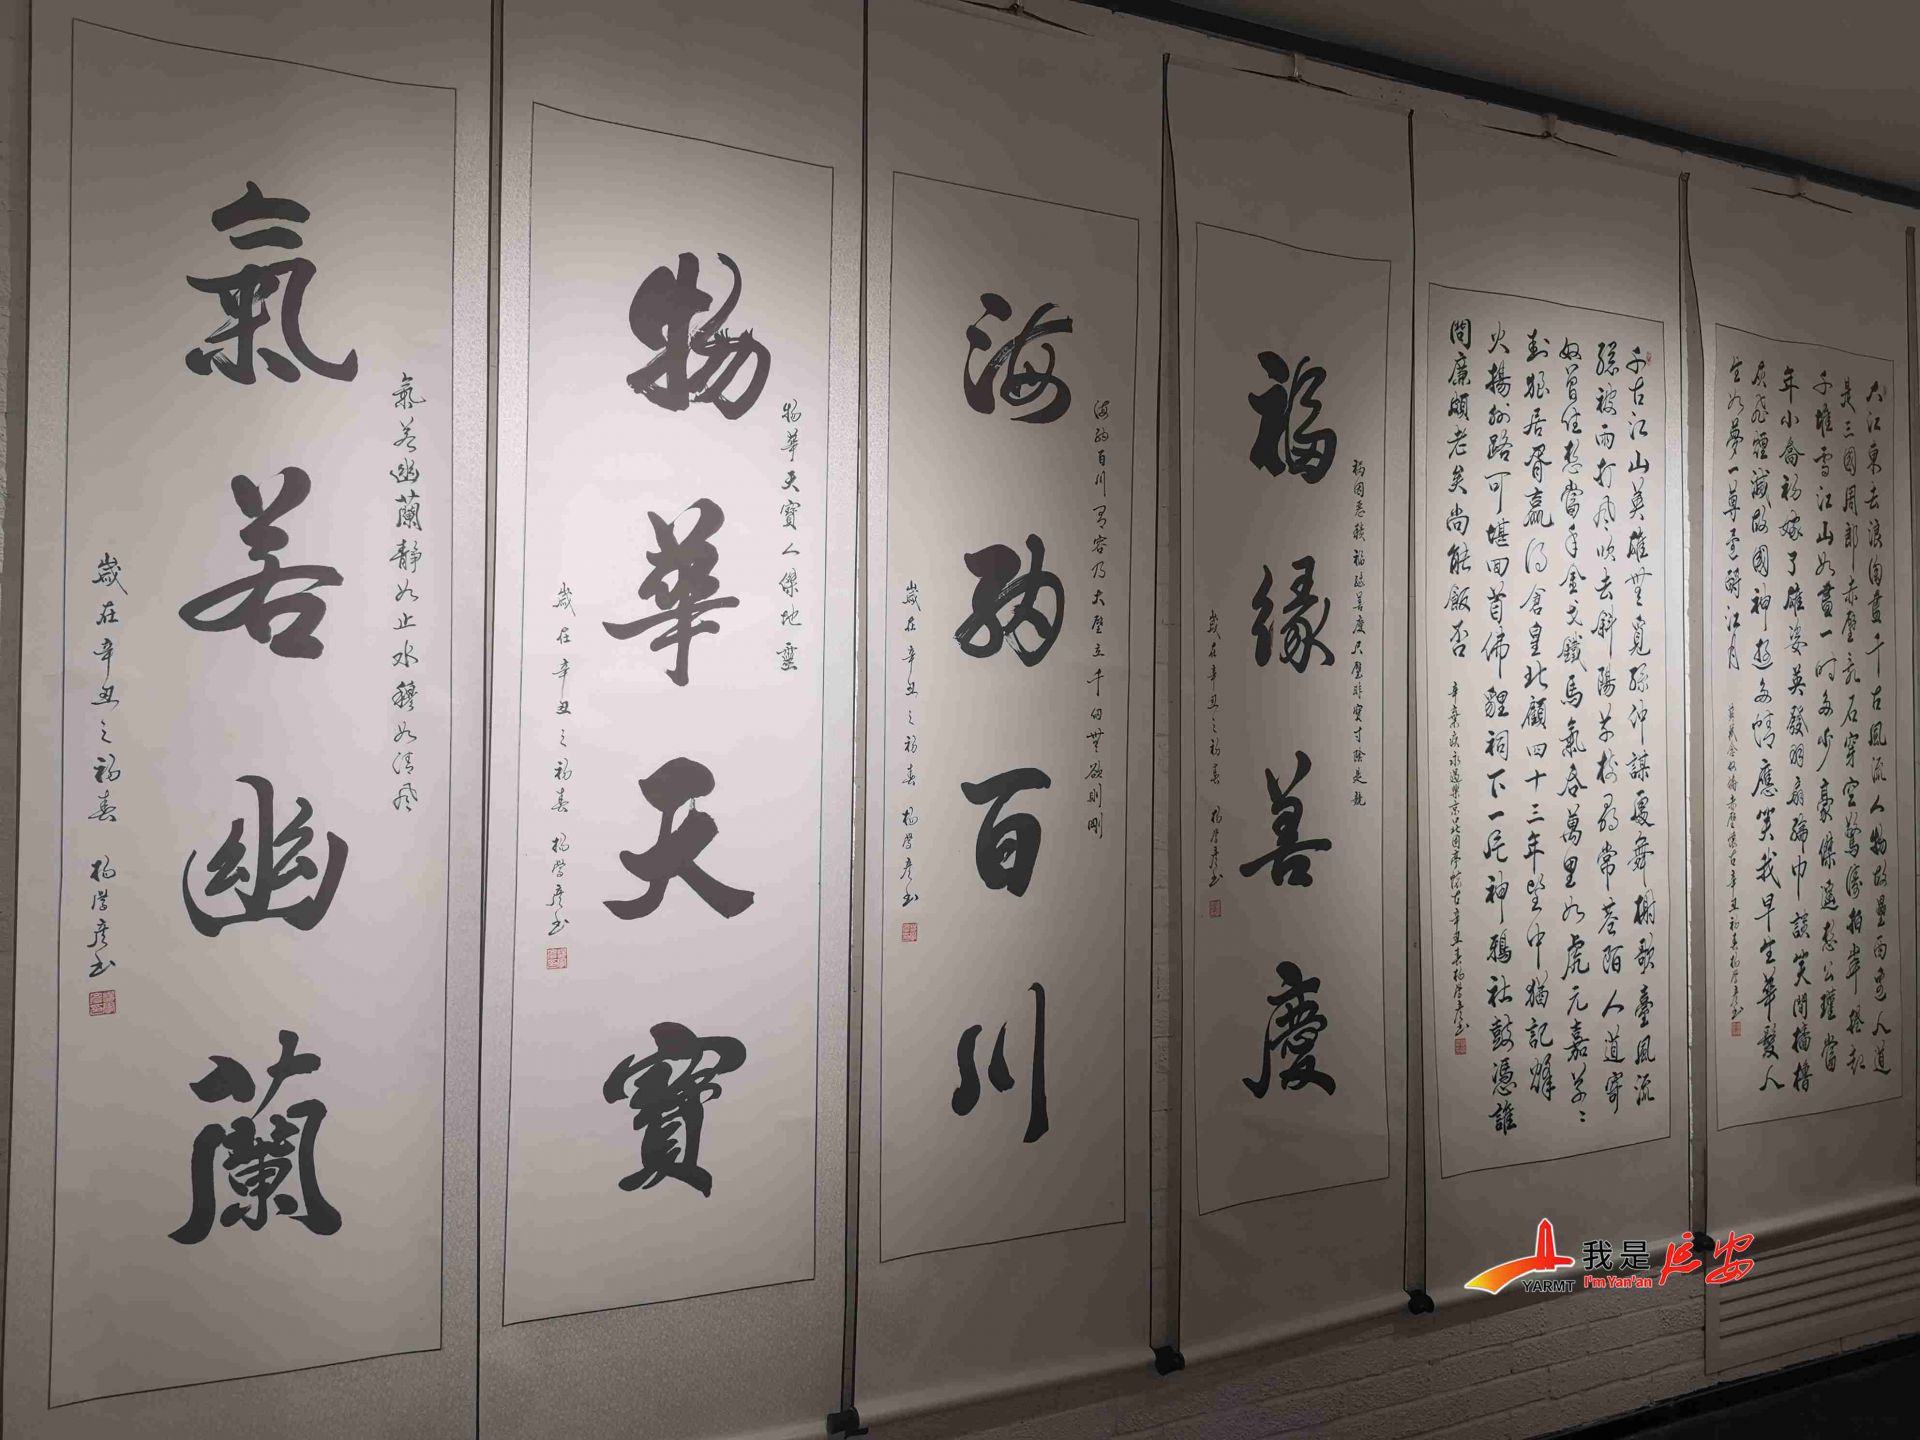 氣若幽蘭
氣若幽蘭靜如止水穆如清風
歲在辛丑之初春 楊學彥書
物華天寶
物華天寶人傑地靈
歲在辛丑之初春 楊學彥書
海納百川
海納百川有容乃大壁立千仞無欲則剛
歲在辛丑之初春 楊學彥書
福緣善慶
禍因惡積福緣善慶尺璧非寶寸陰是競
歲在辛丑之初春 楊學彥書
千古江山英雄無覓孫仲謀處舞榭歌臺風流
總被雨打風吹去斜陽草樹尋常巷陌人道寄
奴曾住想當年金戈鐵馬氣吞萬里如虎元嘉草草
封狼居胥贏得倉皇北顧四十三年望中猶記烽
火揚州路可堪回首佛貍祠下一片神鴉社鼓憑誰
問廉頗老矣尚能飯否
辛棄疾永遇樂京口北固亭懷古辛丑春楊學彥書
大江東去浪淘盡千古風流人物故壘西邊人道
是三國周郎赤壁亂石穿空驚濤拍岸捲起
千堆雪江山如畫一時多少豪傑遙想公瑾當
年小喬初嫁了雄姿英發羽扇綸巾談笑間檣櫓
灰飛煙滅故國神遊多情應笑我早生華髮人
生如夢一尊還酹江月
念奴嬌赤壁懷古辛丑初春楊學彥書
YARMT
我是延安
I'm Yan'an